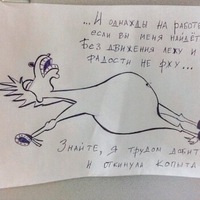 ...И ОДНАЖДЫ НА РАБОТЕ
ЕСЛИ ВЫ МЕНЯ НАЙДЁТ
БЕЗ ДВИЖЕНИЯ ЛЕЖУ И
РАДОСТИ НЕ РЖУ...
ЗНАЙТЕ, Я ТРУДОМ ДОБИТ
И ОТКИНУЛА КОПЫТА